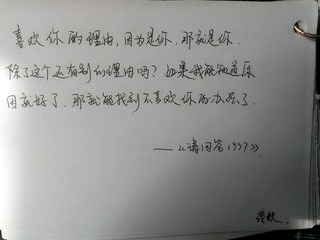 喜欢你的理由,因为是你.那就是你.
除了这个还有别的理由吗?如果我能知道原
因就好了.那就能找到不喜欢你的办法了.
——《请回答1997》